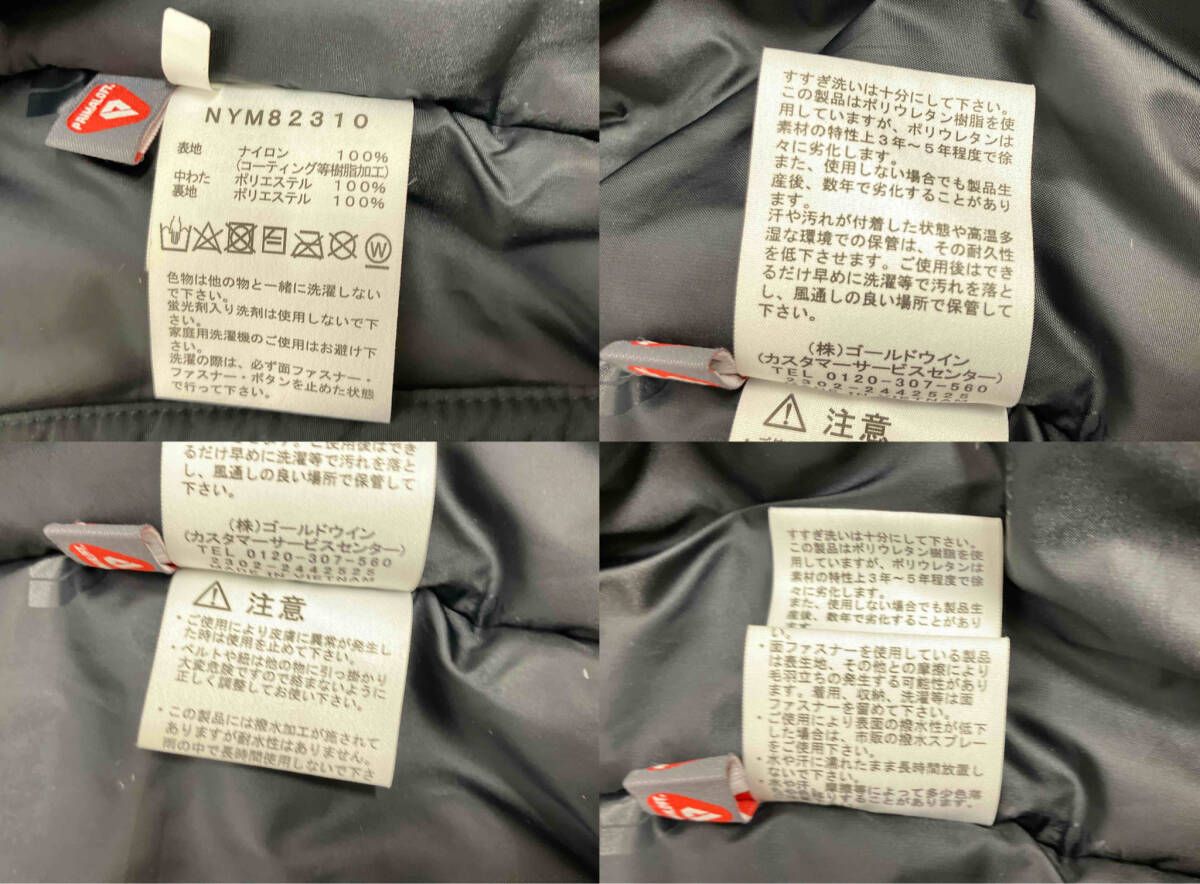 PRIMALOFT.
NYM82310
表地 ナイロン 100%
(コーティング等樹脂加工)
中わた ポリエステル 100%
裏地 ポリエステル 100%
W
色物は他の物と一緒に洗濯しない
で下さい。
蛍光剤入り洗剤は使用しないで下
さい。
家庭用洗濯機のご使用はお避け下
さい。
洗濯の際は、必ず面ファスナー・
ファスナー・ボタンを止めた状態
で行って下さい。
すすぎ洗いは十分にして下さい。
この製品はポリウレタン樹脂を使
用していますが、ポリウレタンは
素材の特性上3年〜5年程度で徐
々に劣化します。
また、使用しない場合でも製品生
産後、数年で劣化することがあり
ます。
汗や汚れが付着した状態や高温多
湿な環境での保管は、その耐久性
を低下させます。ご使用後はでき
るだけ早めに洗濯等で汚れを落と
し、風通しの良い場所で保管して
下さい。
(株)ゴールドウイン
(カスタマーサービスセンター)
TEL 0120-307-560
2302-2442525
⚠ 注意
ありますが、ご使用後はでき
るだけ早めに洗濯等で汚れを落と
し、風通しの良い場所で保管して
下さい。
(株)ゴールドウイン
(カスタマーサービスセンター)
TEL 0120-307-560
2302-2442525
MADE IN VIETNAM
⚠ 注意
・ご使用により皮膚に異常が発生し
た時は使用を止めて下さい。
・ベルトや紐は他の物に引っ掛かり
大変危険ですので絡まないように
正しく調整してお使い下さい。
・この製品には撥水加工が施されて
ありますが耐水性はありません。
雨の中で長時間使用しないで下さ
すすぎ洗いは十分にして下さい。
この製品はポリウレタン樹脂を使
用していますが、ポリウレタンは
素材の特性上3年〜5年程度で徐
々に劣化します。
また、使用しない場合でも製品生
産後、数年で劣化することがあり
ます。
い。
・面ファスナーを使用している製品
は表生地、その他との摩擦により
毛羽立ちの発生する可能性があり
ます。着用、収納、洗濯等は面
ファスナーを留めて下さい。
・ご使用により表面の撥水性が低下
した場合は、市販の撥水スプレー
をご使用下さい。
・水や汗に濡れたまま長時間放置し
ないで下さい。
・水や汗、摩擦等によって多少色落
することがあります。